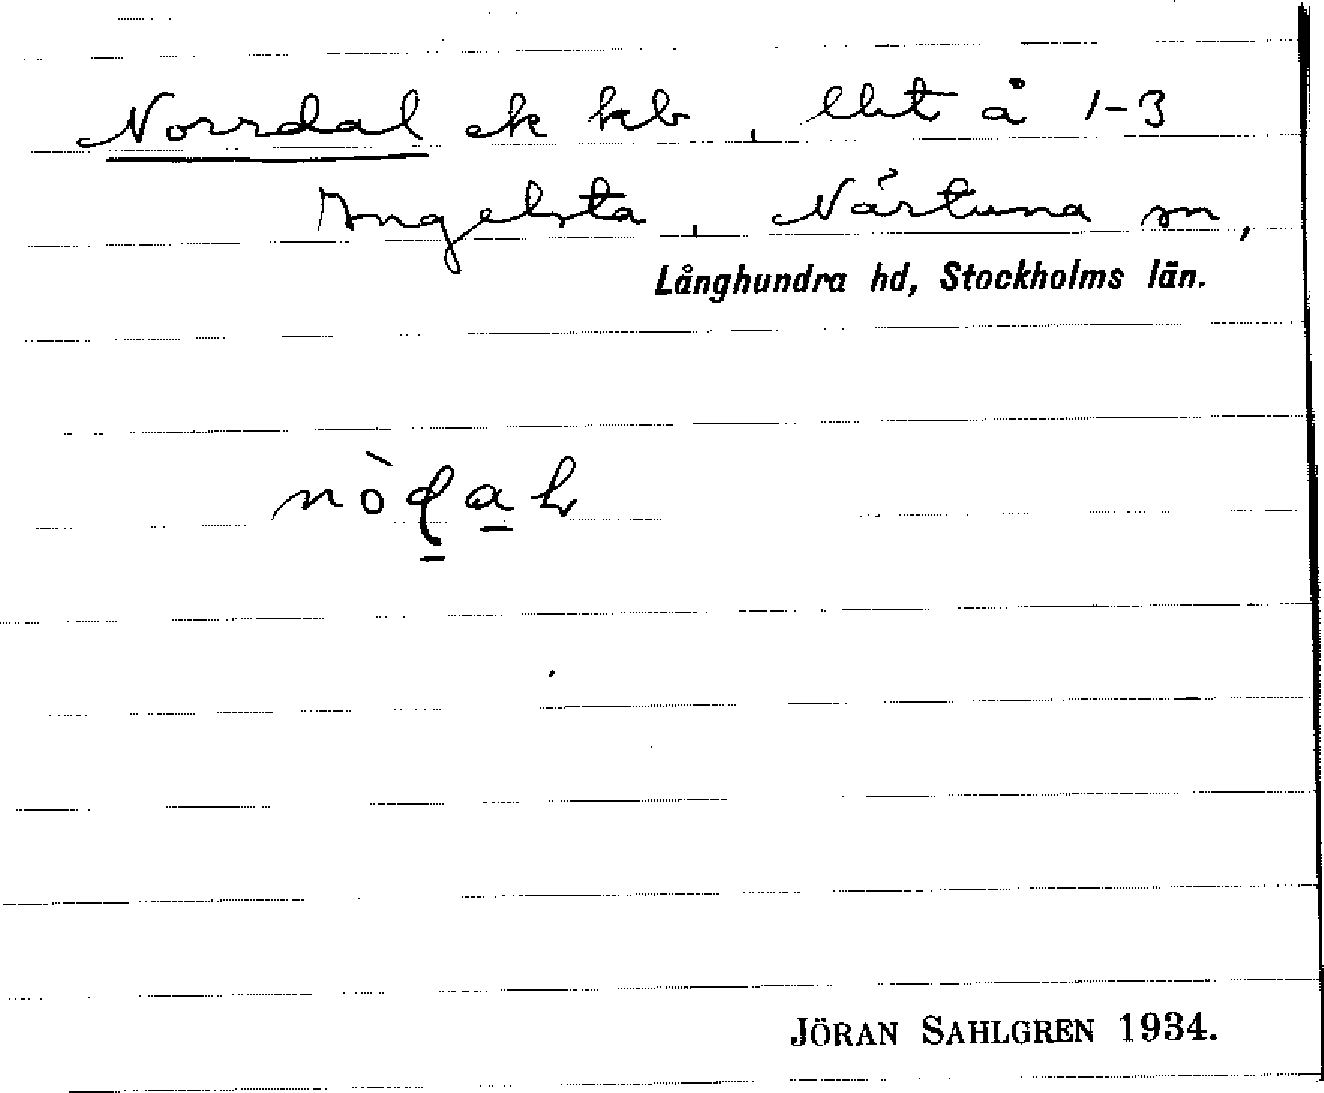 Norrdal ek kb, lht å 1-3
Angelsta, Närtuna sn,
Långhundra hd, Stockholms län.
JÖRAN SAHLGREN 1934.